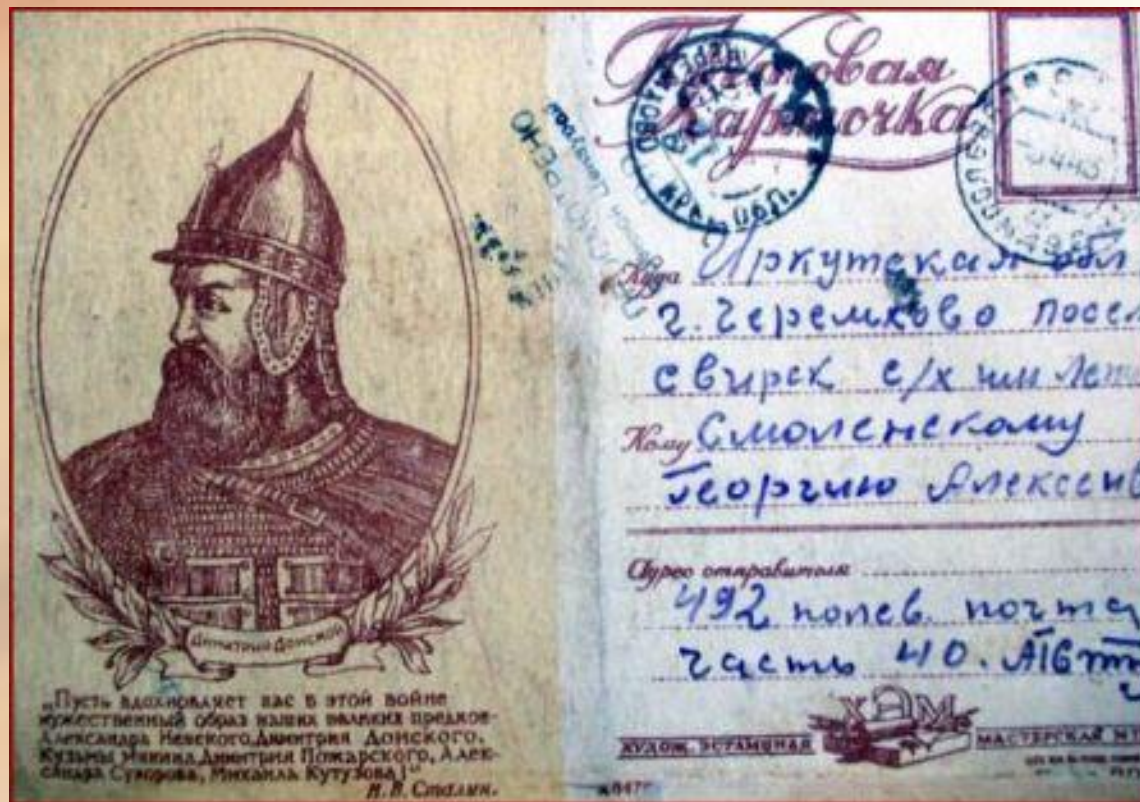 Димитрий Донской
„Пусть вдохновляет вас в этой войне
мужественный образ наших великих предков-
Александра Невского, Димитрия Донского,
Кузьмы Минина, Димитрия Пожарского, Алек-
сандра Суворова, Михаила Кутузова!“
И. В. Сталин.
Почтовая
Карточка
Куда Иркутская обл
г. Черемхово посел
свирск с/х им
Кому Смоленскому
Георгию Алексеев
Адрес отправителя
492 полев. почта
часть 40.
ХЭМ
ХУДОЖ. ЭСТАМПНАЯ МАСТЕРСКАЯ